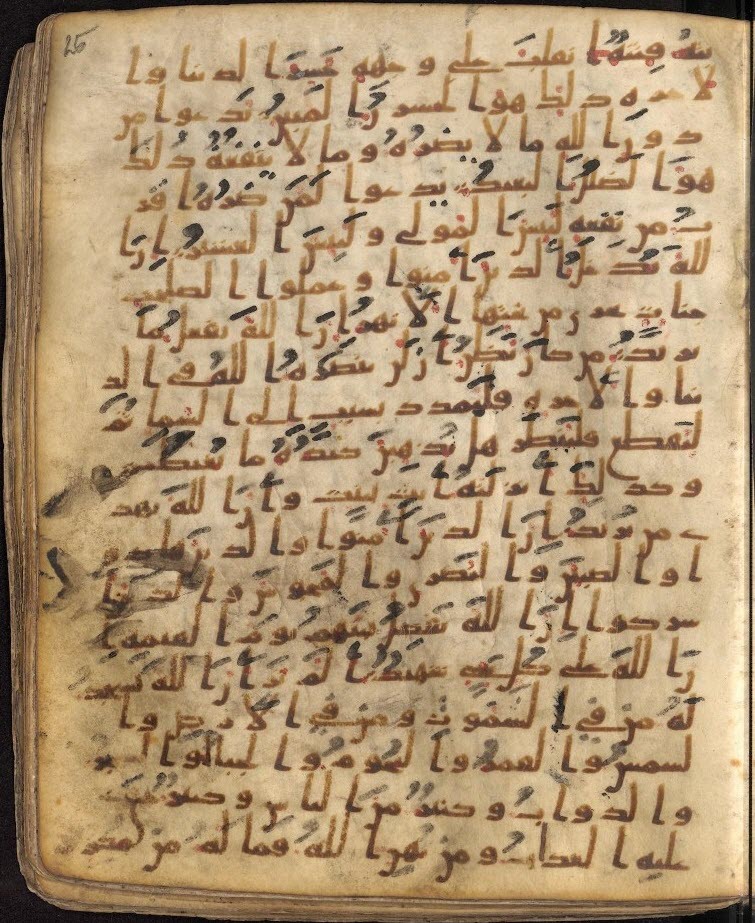 25
ته فتنة انقلب على وجهه خسر الدنيا وا
لاخرة ذلك هو الخسران المبين يدعوا من
دون الله ما لا يضره وما لا ينفعه ذلك
هو الضلل البعيد يدعوا لمن ضره اقر
ب من نفعه لبئس المولى ولبئس العشير ان ا
لله يدخل الذين امنوا وعملوا الصلحت
جنات تجري من تحتها الانهر ان الله يفعل ما
يريد من كان يظن ان لن ينصره الله في الد
نيا والاخرة فليمدد بسبب الى السما ثم
ليقطع فلينظر هل يذهبن كيده ما يغيظ
وكذلك انزلنه ايت بينت وان الله يهد
ي من يريد ان الذين امنوا والذين هادو
ا والصبين والنصرى والمجوس والذين ا
شركوا ان الله يفصل بينهم يوم القيمة ا
ن الله على كل شي شهيد الم تر ان الله يسجد
له من في السموت ومن في الارض وا
لشمس والقمر والنجوم والجبال والشجر
والدواب وكثير من الناس وكثير حق
عليه العذاب ومن يهن الله فما له من مكرم